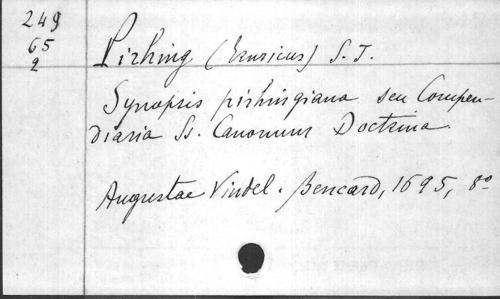 249
65
2
Pirhing (Enricus) S. J.
Synopsis pirhingiana seu Compen-
diaria Ss. Canonum Doctrina.
Augustae Vindel. Bencard, 1695, 8º